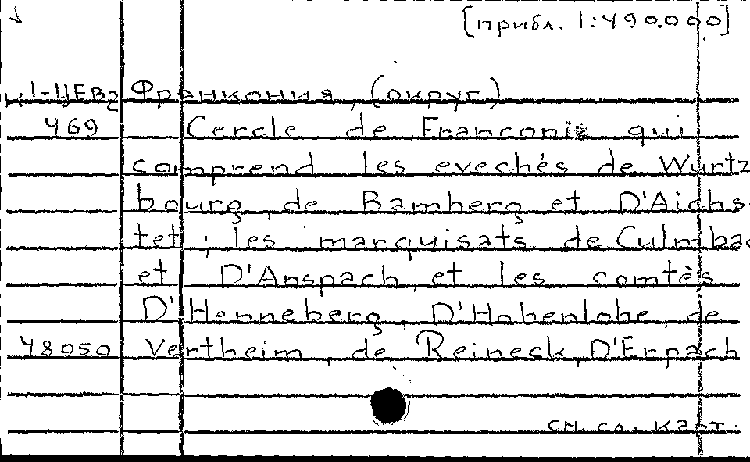 [прибл. 1:490.000]
Франкония, (округ)
469 Cercle de Franconie qui
comprend les evechés de Wurtz
bourg, de Bamberg et D'Aichs-
tet; les marquisats de Culmbac
et D'Anspach et les comtés
D'Henneberg, D'Hohenlohe, de
48050 Vertheim, de Reineck, D'Erpach
см. сл. карт.